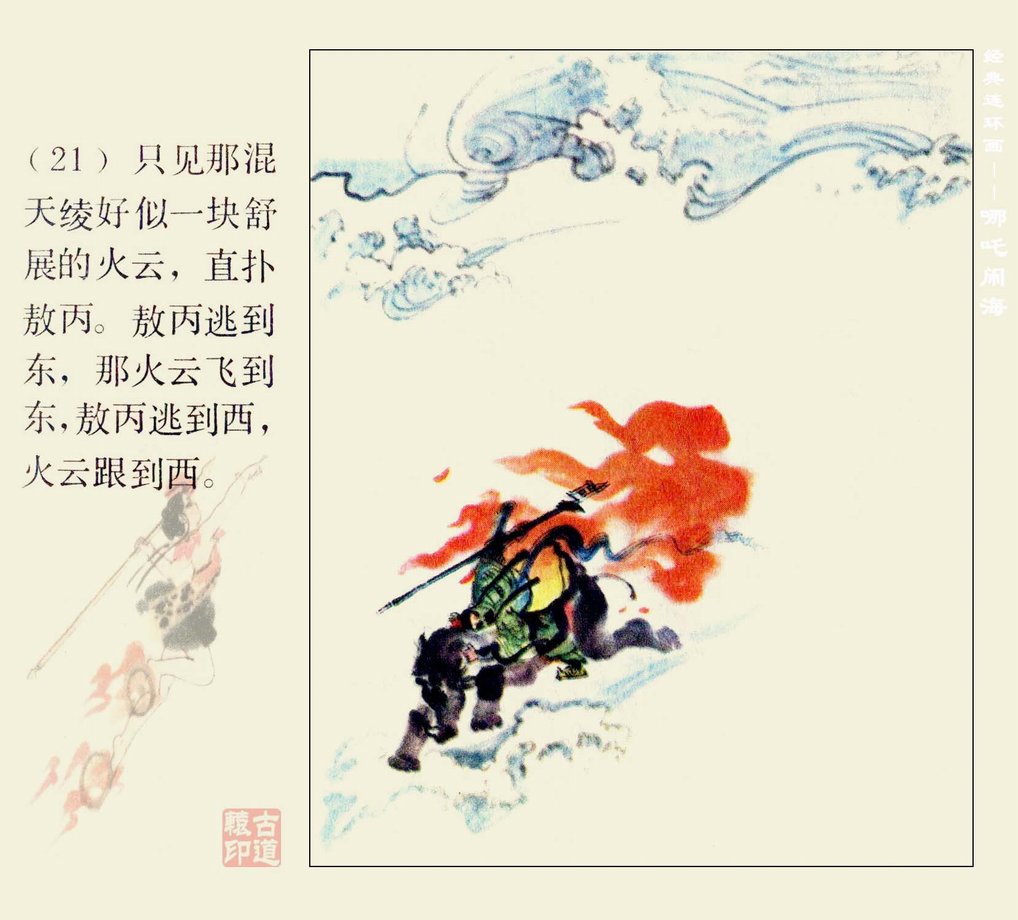 （21）只见那混
天绫好似一块舒
展的火云，直扑
敖丙。敖丙逃到
东，那火云飞到
东，敖丙逃到西，
火云跟到西。
经典连环画——哪吒闹海
古道
辕印